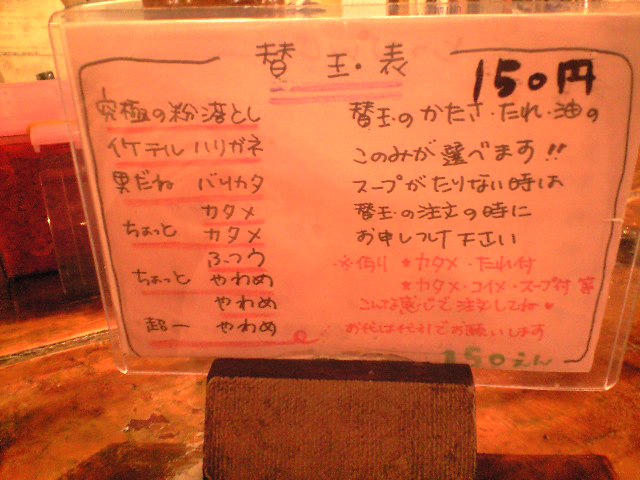 替玉・表
150円
究極の粉落とし
イケテル ハリガネ
男だね バリカタ
カタメ
ちょっと カタメ
ふつう
ちょっと やわめ
やわめ
超一 やわめ
替玉のかたさ・たれ・油の
このみが選べます!!
スープがたりない時は
替玉の注文の時に
お申しつけ下さい
※例り ★カタメ・たれ付
★カタメ・コイメ・スープ付 等
こんな感じで注文してね♥
お代は代引でお願いします
150えん